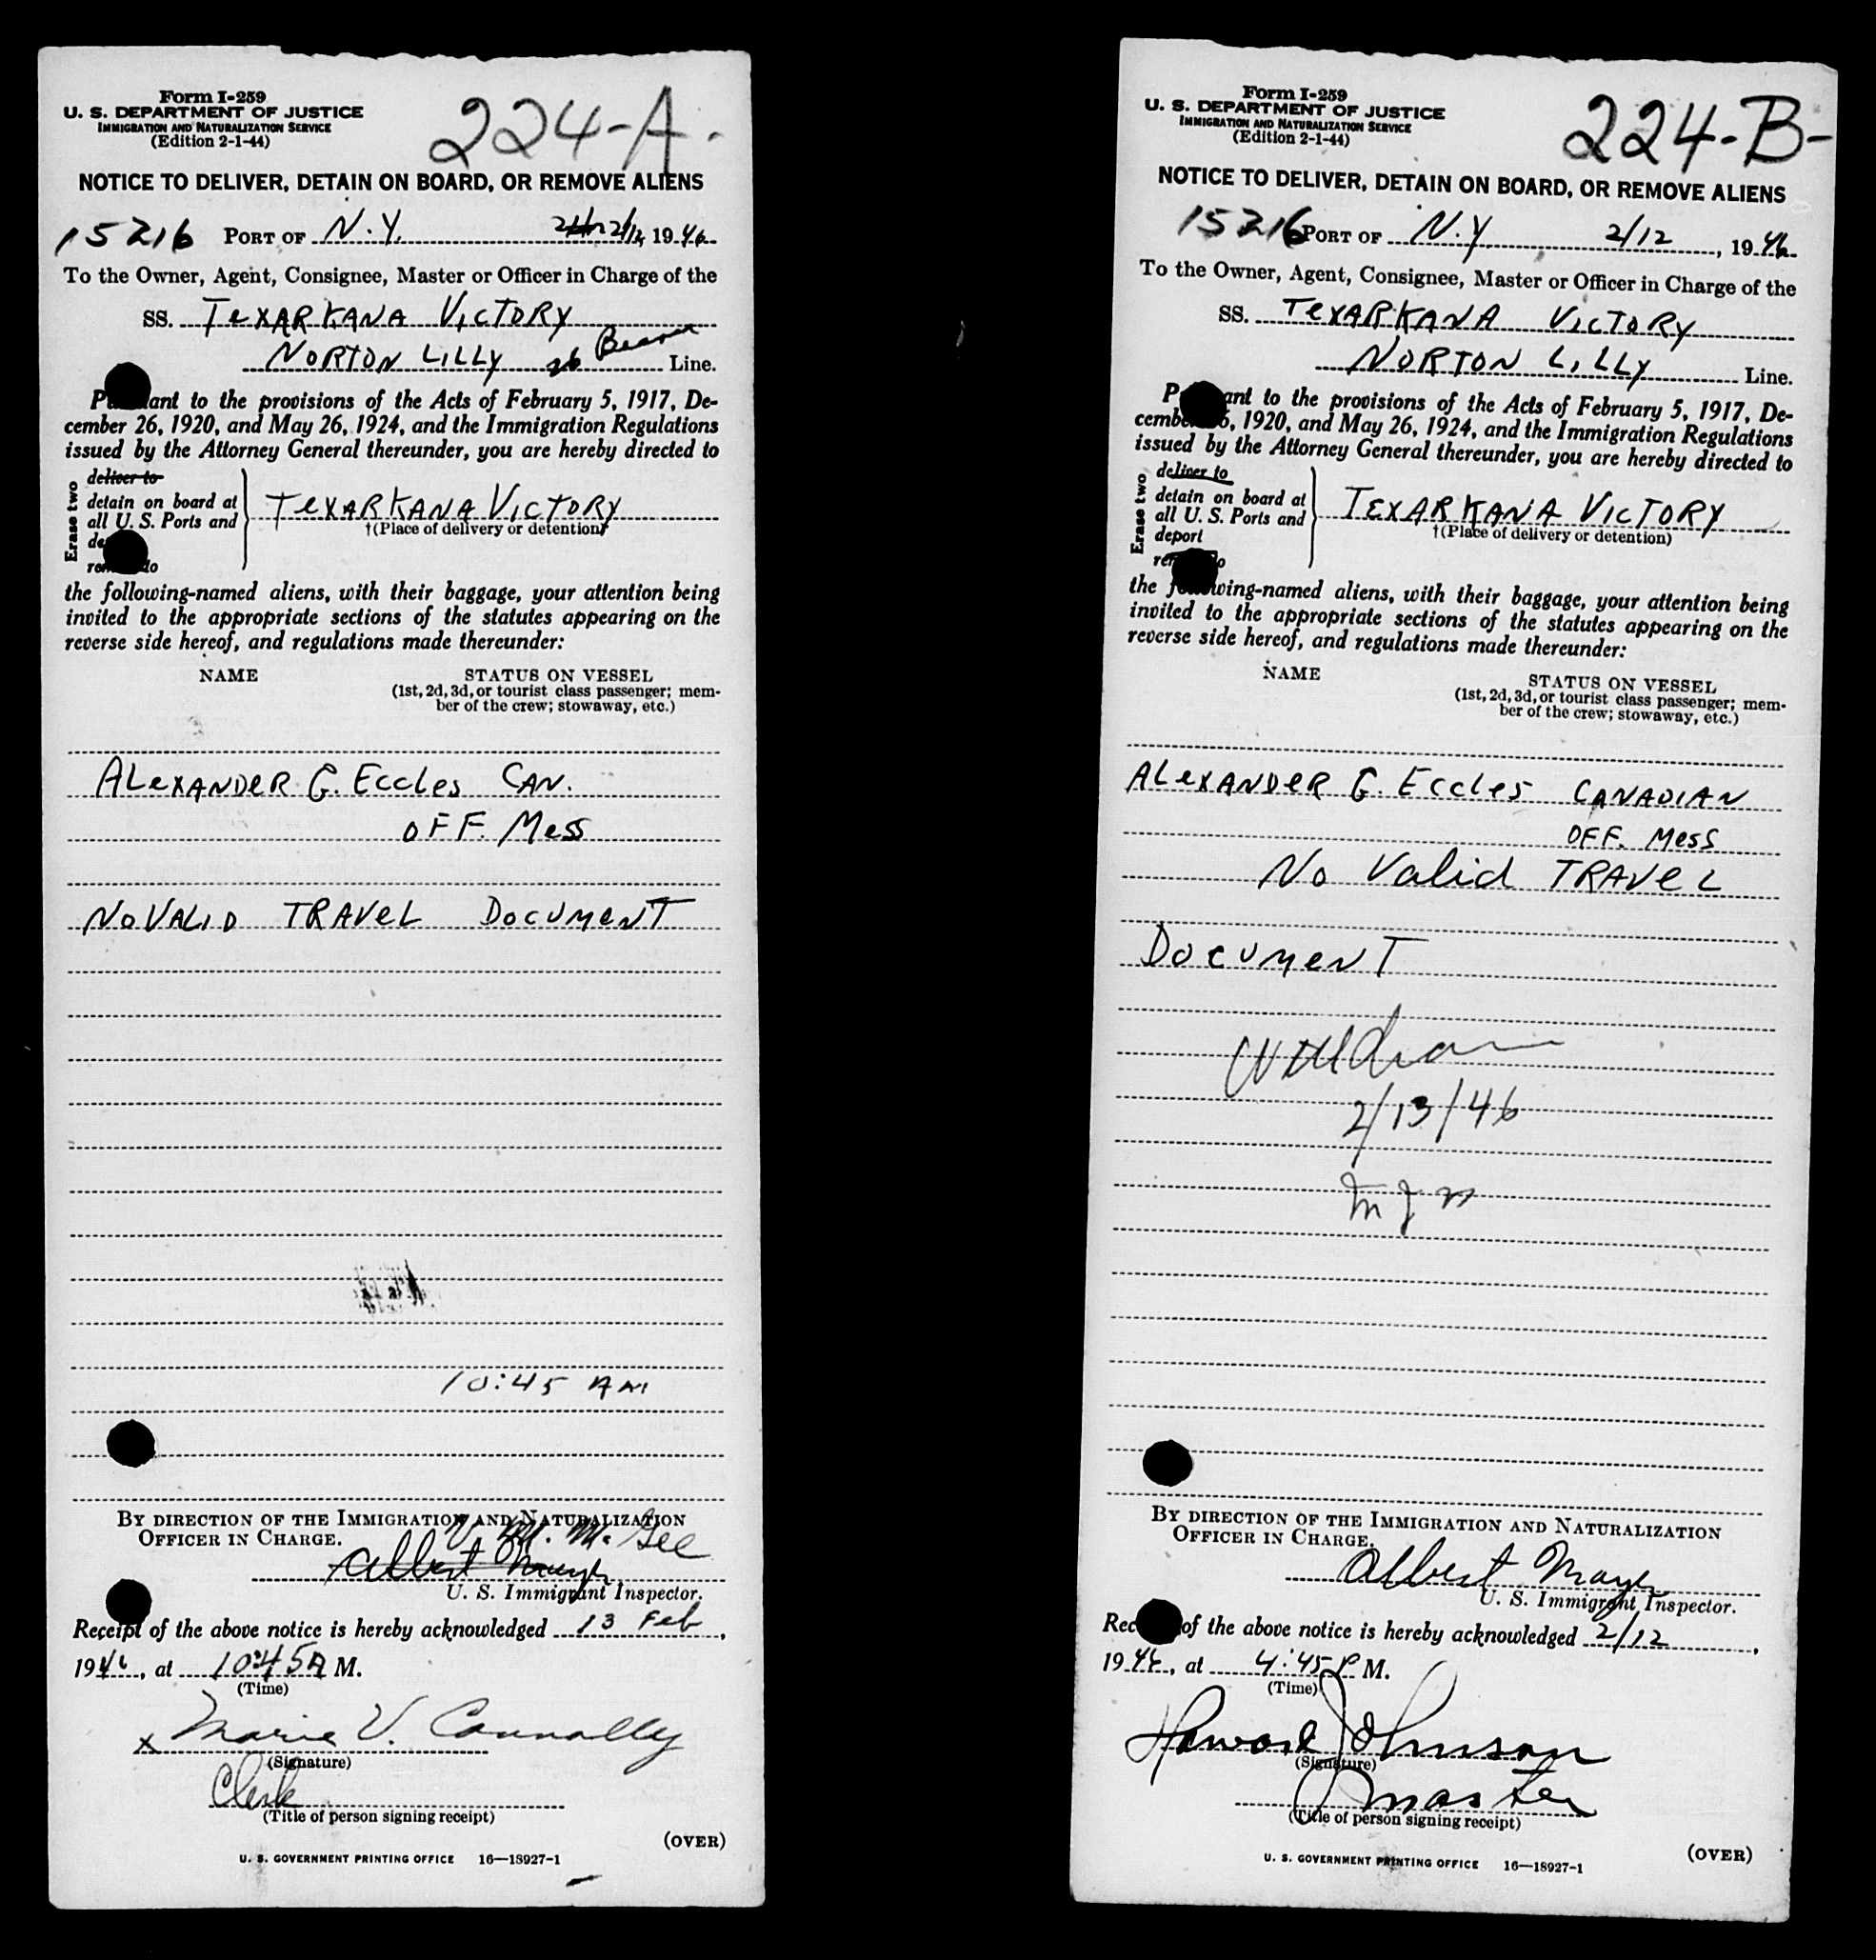 Form I-259
U. S. DEPARTMENT OF JUSTICE
IMMIGRATION AND NATURALIZATION SERVICE
(Edition 2-1-44)
224-A.
NOTICE TO DELIVER, DETAIN ON BOARD, OR REMOVE ALIENS
15216 PORT OF N.Y. 2/12 1946
To the Owner, Agent, Consignee, Master or Officer in Charge of the
SS. TEXARKANA VICTORY
NORTON LILLY 26 Beaver Line.
ant to the provisions of the Acts of February 5, 1917, De-
cember 26, 1920, and May 26, 1924, and the Immigration Regulations
issued by the Attorney General thereunder, you are hereby directed to
Erase two
deliver to
detain on board at
all U. S. Ports and
TEXARKANA VICTORY
†(Place of delivery or detention)
the following-named aliens, with their baggage, your attention being
invited to the appropriate sections of the statutes appearing on the
reverse side hereof, and regulations made thereunder:
NAME STATUS ON VESSEL
(1st, 2d, 3d, or tourist class passenger; mem-
ber of the crew; stowaway, etc.)
ALEXANDER G. ECCLES CAN.
OFF. MESS
NO VALID TRAVEL DOCUMENT
10:45 AM
BY DIRECTION OF THE IMMIGRATION AND NATURALIZATION
OFFICER IN CHARGE.
V. M. McGee
Albert Mayer
U. S. Immigrant Inspector.
Receipt of the above notice is hereby acknowledged 13 Feb,
1946, at 10:45 A M.
(Time)
x Marie V. Connolly
(Signature)
Clerk
(Title of person signing receipt)
(OVER)
U. S. GOVERNMENT PRINTING OFFICE 16—18927-1
Form I-259
U. S. DEPARTMENT OF JUSTICE
IMMIGRATION AND NATURALIZATION SERVICE
(Edition 2-1-44)
224-B-
NOTICE TO DELIVER, DETAIN ON BOARD, OR REMOVE ALIENS
15216 PORT OF N.Y. 2/12, 1946
To the Owner, Agent, Consignee, Master or Officer in Charge of the
SS. TEXARKANA VICTORY
NORTON LILLY Line.
ant to the provisions of the Acts of February 5, 1917, De-
cember 26, 1920, and May 26, 1924, and the Immigration Regulations
issued by the Attorney General thereunder, you are hereby directed to
Erase two
deliver to
detain on board at
all U. S. Ports and
deport
TEXARKANA VICTORY
†(Place of delivery or detention)
the following-named aliens, with their baggage, your attention being
invited to the appropriate sections of the statutes appearing on the
reverse side hereof, and regulations made thereunder:
NAME STATUS ON VESSEL
(1st, 2d, 3d, or tourist class passenger; mem-
ber of the crew; stowaway, etc.)
ALEXANDER G. ECCLES CANADIAN
OFF. MESS
No Valid TRAVEL
DOCUMENT
2/13/46
BY DIRECTION OF THE IMMIGRATION AND NATURALIZATION
OFFICER IN CHARGE.
Albert Mayer
U. S. Immigrant Inspector.
Rec of the above notice is hereby acknowledged 2/12,
1946, at 4:45 P M.
(Time)
Howard Johnson
(Signature)
Master
(Title of person signing receipt)
(OVER)
U. S. GOVERNMENT PRINTING OFFICE 16—18927-1